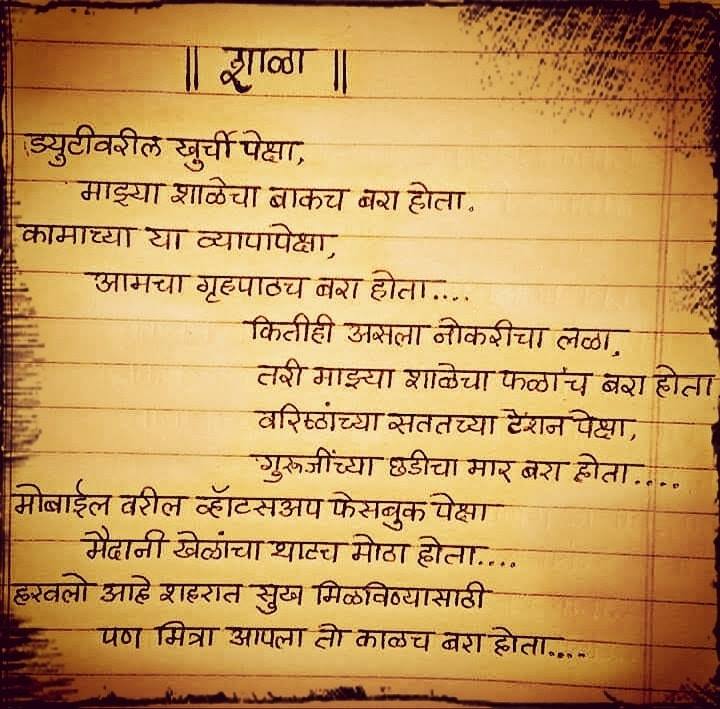 || शाळा ||
ड्युटीवरील खुर्ची पेक्षा,
माझ्या शाळेचा बाकच बरा होता.
कामाच्या या व्यापापेक्षा,
आमचा गृहपाठच बरा होता....
कितीही असला नोकरीचा लळा,
तरी माझ्या शाळेचा फळाच बरा होता
वरिष्ठांच्या सततच्या टेंशन पेक्षा,
गुरूजींच्या छडीचा मार बरा होता....
मोबाईल वरील व्हॉटसअप फेसबुक पेक्षा
मैदानी खेळांचा थाटच मोठा होता....
हरवलो आहे शहरात सुख मिळविण्यासाठी
पण मित्रा आपला तो काळच बरा होता....